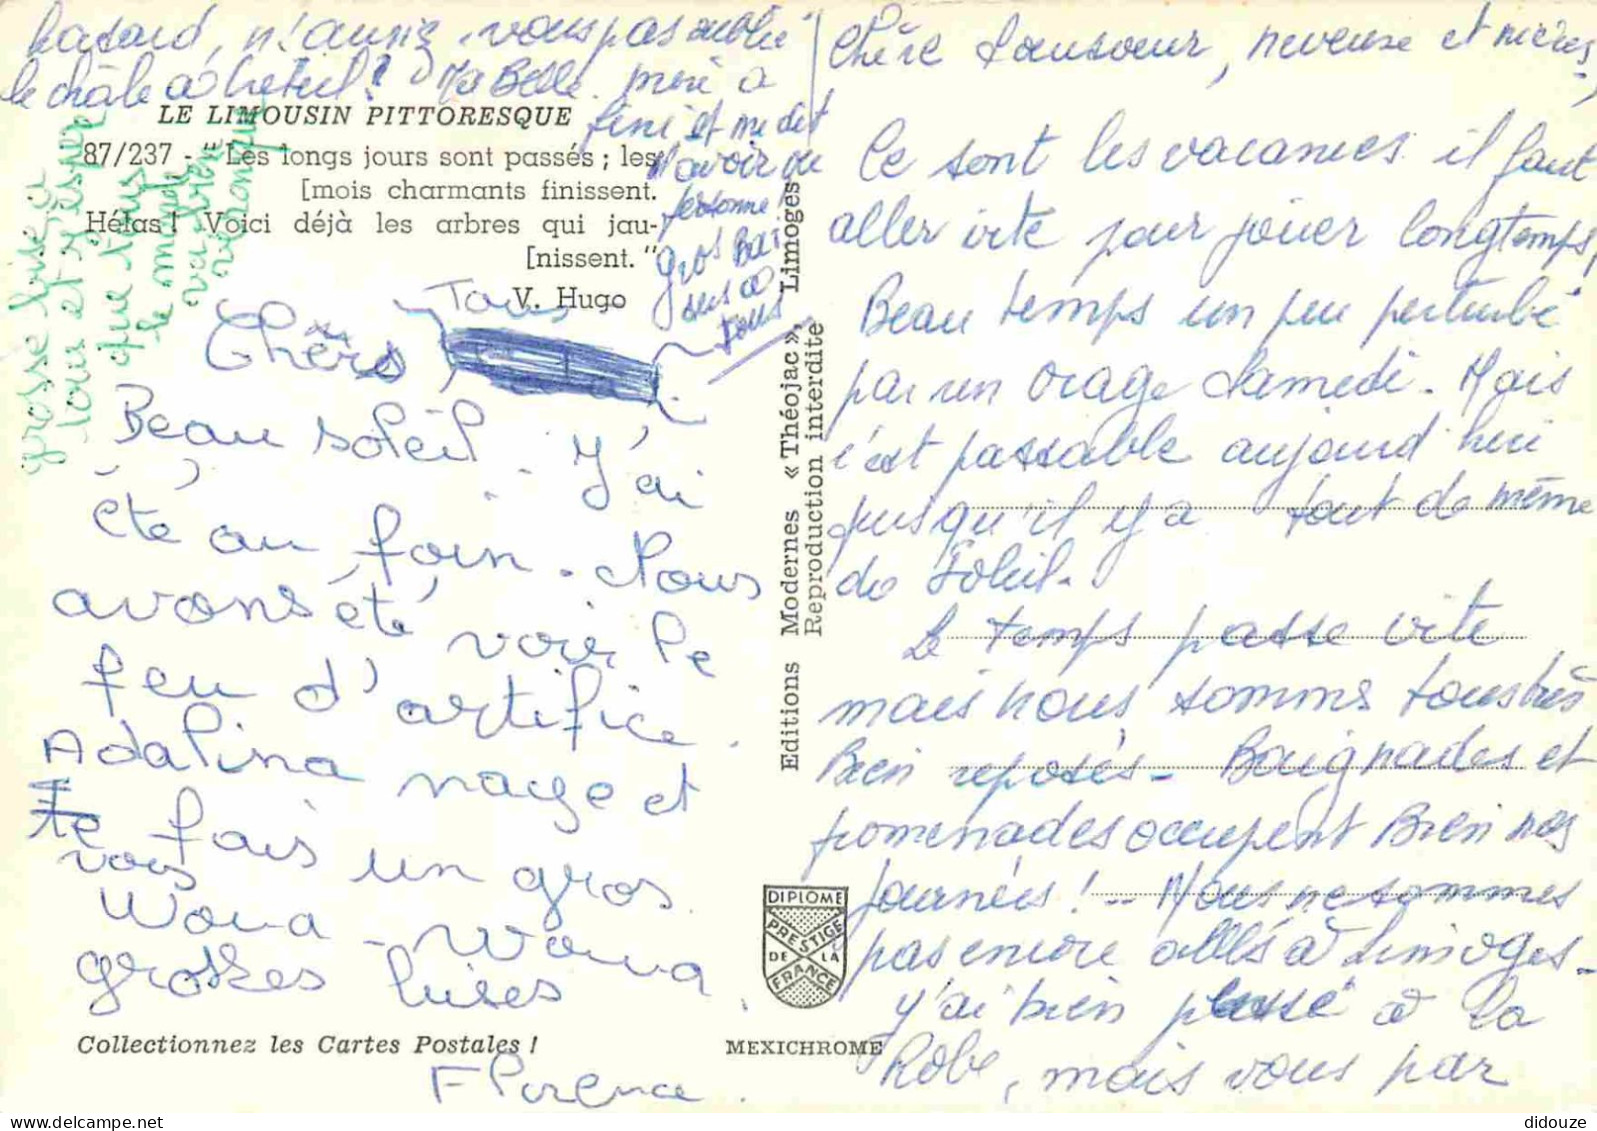 Chère Soeur, neveux et nièces,
Ce sont les vacances il faut
aller vite pour jouer longtemps,
Beau temps un peu perturbé
par un orage Samedi. Mais
c'est passable aujourd hui
puisqu'il y a tout de même
du Soleil.
Le temps passe vite
mais nous sommes tous très
Bien reposés - Baignades et
promenades occupent Bien nos
journées ! - Nous ne sommes
pas encore allés à Limoges -
J'ai bien pensé à la
Robe, mais vous par
hasard, n'auriez vous pas oublié
le châle à Créteil ? Ma Belle mère a
fini et me dit
n'avoir vu
personne !
gros Bai
sers à
tous
LE LIMOUSIN PITTORESQUE
87/237 - "Les longs jours sont passés ; les
[mois charmants finissent.
Hélas ! Voici déjà les arbres qui jau-
[nissent."
V. Hugo
grosse bise à
tous et j'espère
que tous
le monde
va bien
Chers Tous
Beau soleil. J'ai
été au foin. Nous
avons été voir le
feu d'artifice.
Adalina nage et
te fais un gros
vois
Woua - Woua
grosses bises
Florence
Editions Modernes « Théojac », Limoges
Reproduction interdite
DIPLOME
PRESTIGE
DE LA
FRANCE
Collectionnez les Cartes Postales !
MEXICHROME
delcampe.net
didouze